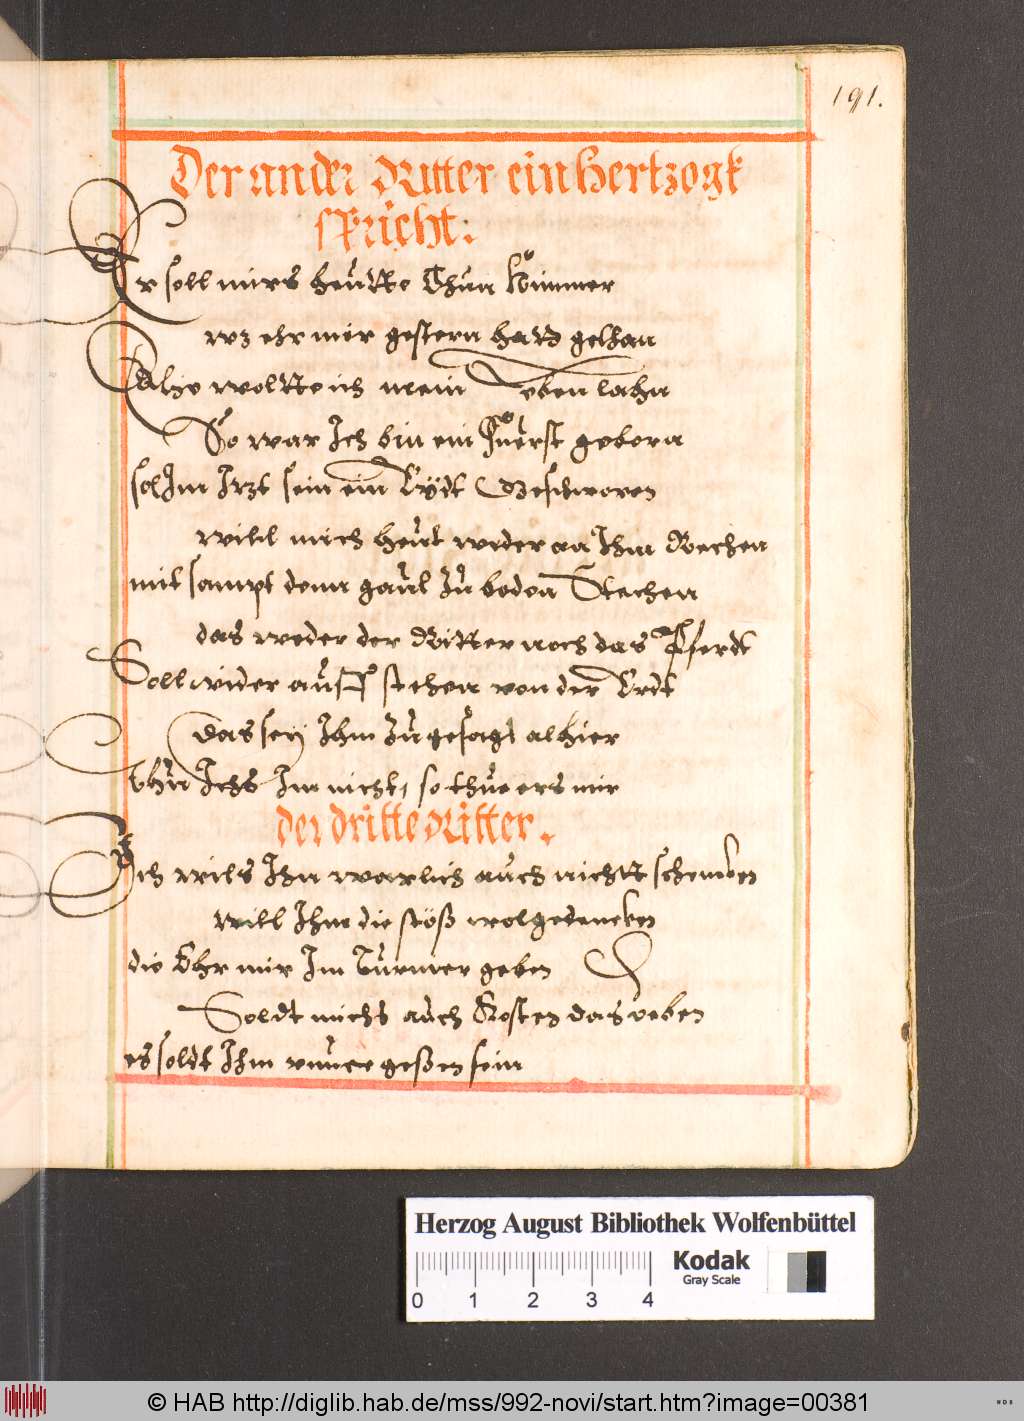 191.
Der ander Ritter ein Hertzogk
spricht:
Er soll mirs heutte Thun kümmer
wz ehr mir gestern hatt gethan
Also woltte ich mein Leben lahn
So war Ich bin ein Fuerst geborn
sol Im Itzt sein ein Eydt Geschworen
will mich heut wider an Ihm Rechen
mit sampt dem gaul zu boden Stechen
das weder der Ritter noch das Pferdt
Soll wider auff stehen von der Erdt
das sey Ihm zugesagt alhier
thu Ichs Im nicht, so thue ers mir
der dritte Ritter.
Ich wils Ihn warlich auch nicht schencken
will Ihm die stöß wol gedencken
die Ehr mir Im Turnier geben
Soldt michs auch Kosten das leben
es soldt Ihm vnuergeßen sein
Herzog August Bibliothek Wolfenbüttel
Kodak
Gray Scale
0 1 2 3 4
© HAB http://diglib.hab.de/mss/992-novi/start.htm?image=00381